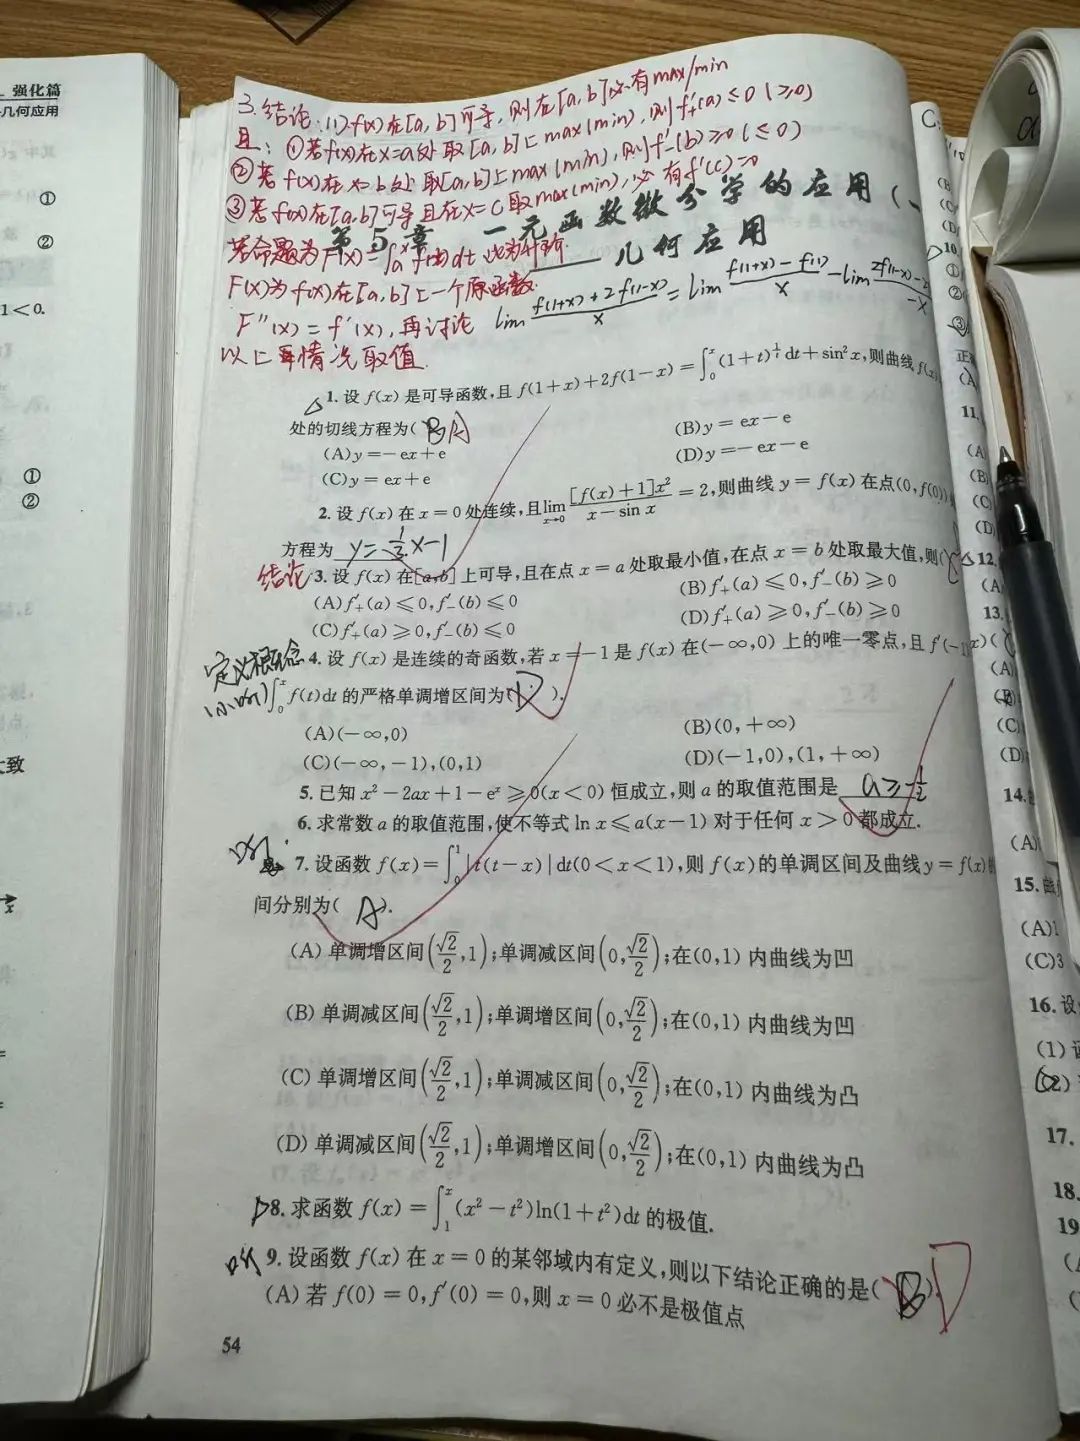 强化篇
几何应用
①
②
1<0.
①
②
大致
3.结论:(1)f(x)在[a,b]可导,则在[a,b]必有max/min
且:①若f(x)在x=a处取[a,b]上max(min),则f'₊(a)≤0(≥0)
②若f(x)在x=b处取[a,b]上max(min),则f'₋(b)≥0(≤0)
③若f(x)在[a,b]可导且在x=c取max(min),必有f'(c)=0
第5章 一元函数微分学的应用(一
几何应用
若命题为F(x)=∫ₐˣf(t)dt
F(x)为f(x)在[a,b]上一个原函数.
F''(x)=f'(x),再讨论
以上 情况取值.
lim f(1+x)+2f(1-x)/x = lim f(1+x)-f(1)/x - lim 2f(1-x)-2/-x
1.设 f(x) 是可导函数,且 f(1+x)+2f(1-x)=∫₀ˣ(1+t)^(1/t)dt+sin²x,则曲线 f(x)
处的切线方程为( B A
(A)y=-ex+e
(B)y=ex-e
(C)y=ex+e
(D)y=-ex-e
2.设 f(x) 在 x=0 处连续,且lim(x→0) [f(x)+1]x²/(x-sin x)=2,则曲线 y=f(x) 在点(0,f(0))
方程为 y=1/3x-1
结论 3.设 f(x) 在[a,b]上可导,且在点 x=a 处取最小值,在点 x=b 处取最大值,则(
(A)f'₊(a)≤0,f'₋(b)≤0
(B)f'₊(a)≤0,f'₋(b)≥0
(C)f'₊(a)≥0,f'₋(b)≤0
(D)f'₊(a)≥0,f'₋(b)≥0
定义概念 4.设 f(x) 是连续的奇函数,若 x=-1 是 f(x) 在(-∞,0) 上的唯一零点,且 f'(-1
∫₀ˣf(t)dt 的严格单调增区间为( D ).
(A)(-∞,0)
(B)(0,+∞)
(C)(-∞,-1),(0,1)
(D)(-1,0),(1,+∞)
5.已知 x²-2ax+1-eˣ≥0(x<0) 恒成立,则 a 的取值范围是 a≥-1/2
6.求常数 a 的取值范围,使不等式 ln x≤a(x-1) 对于任何 x>0 都成立.
7.设函数 f(x)=∫₀¹|t(t-x)|dt(0<x<1),则 f(x)的单调区间及曲线 y=f(x)
间分别为( A ).
(A) 单调增区间(√2/2,1);单调减区间(0,√2/2);在(0,1) 内曲线为凹
(B) 单调减区间(√2/2,1);单调增区间(0,√2/2);在(0,1) 内曲线为凹
(C) 单调增区间(√2/2,1);单调减区间(0,√2/2);在(0,1) 内曲线为凸
(D) 单调减区间(√2/2,1);单调增区间(0,√2/2);在(0,1) 内曲线为凸
8.求函数 f(x)=∫₁ˣ(x²-t²)ln(1+t²)dt 的极值.
9.设函数 f(x) 在 x=0 的某邻域内有定义,则以下结论正确的是( B ).
(A) 若 f(0)=0,f'(0)=0,则 x=0 必不是极值点
54
10
①
②
③
正确
(A
11.
(A)
(B)
(C)
(D)
12.
(A)
13.
(A)
(C)
(D)
14.
(A)
15.曲
(A)1
(C)3
16.设
(1)
(2)
17.
18.
19